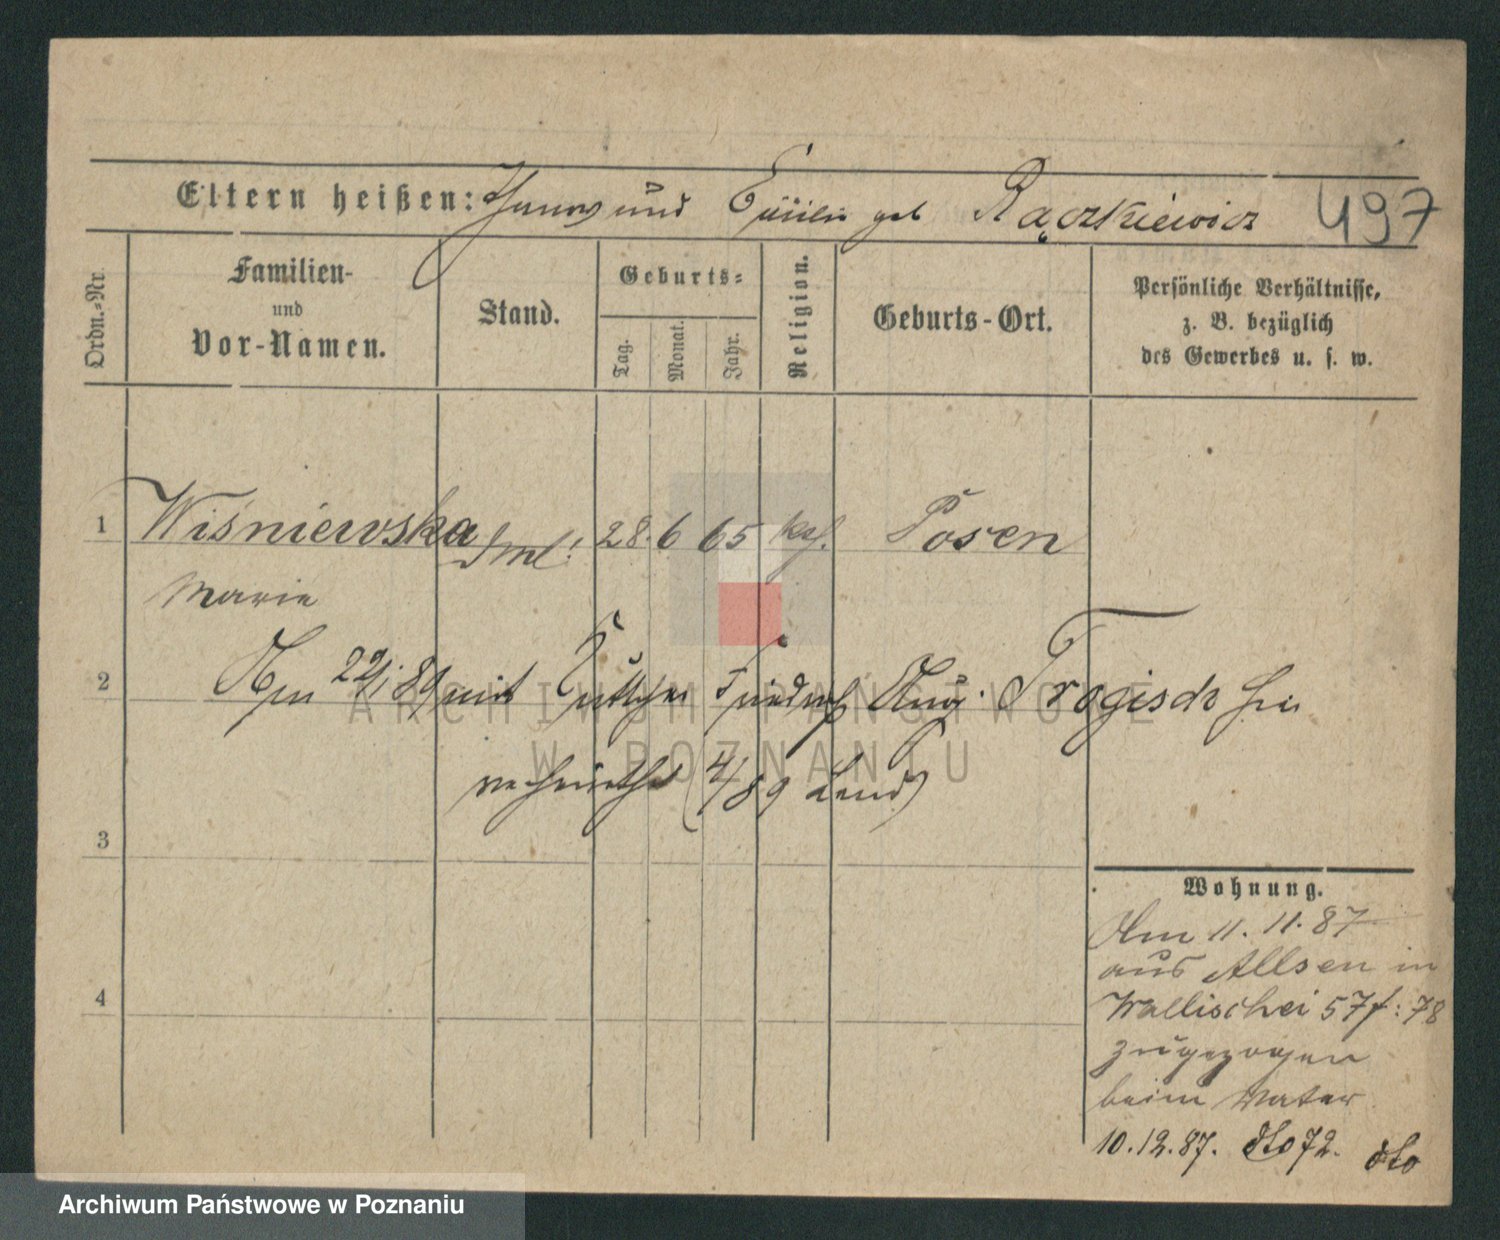 Eltern heißen: und Emilie geb Rączkiewicz 497
Ordn.-Nr.
Familien-
und
Vor-Namen.
Stand.
Geburts-
Tag.
Monat.
Jahr.
Religion.
Geburts-Ort.
Persönliche Verhältnisse,
z. B. bezüglich
des Gewerbes u. s. w.
1 Wiśniewska 28. 6 65 kath. Posen
Marie
2 Am 22/1 89 mit Kutscher Friedrich Aug. Trogisch hier
verheirathet (4/89 Land)
3
4
Wohnung.
Am 11. 11. 87
aus Allsen in
Wallischei 57 f: 78
zugezogen
beim Vater
10.12.87. dto 72. dto
ARCHIWUM PAŃSTWOWE
W POZNANIU
Archiwum Państwowe w Poznaniu